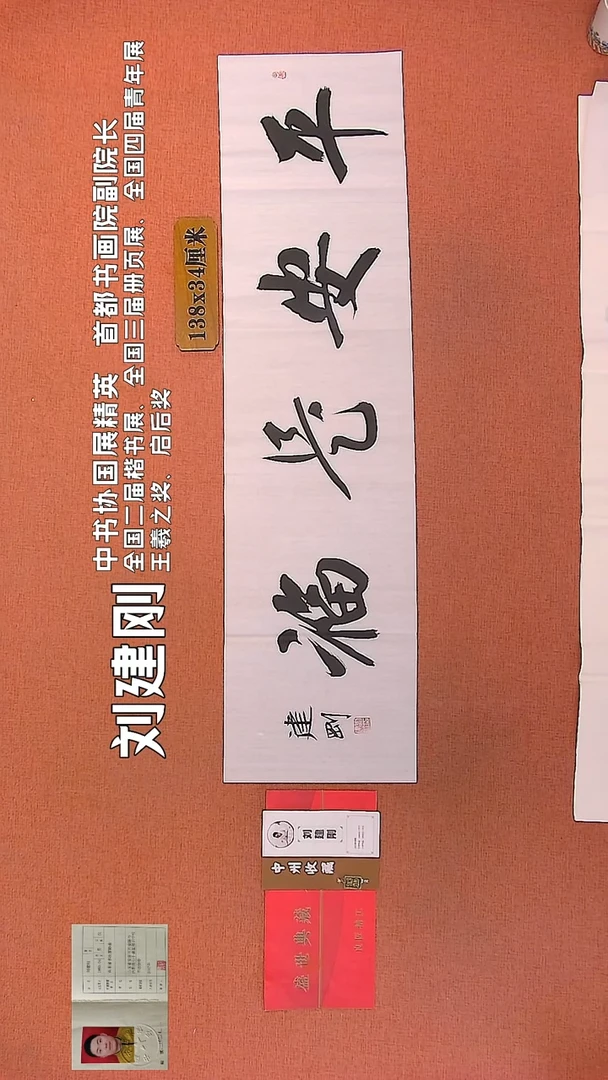 刘建刚
中书协国展精英 首都书画院副院长
全国二届楷书展、全国三届册页展、全国四届青年展
王羲之奖、启后奖
138x34厘米
平安是福
建剛
刘建刚
中州收藏
盛世典藏